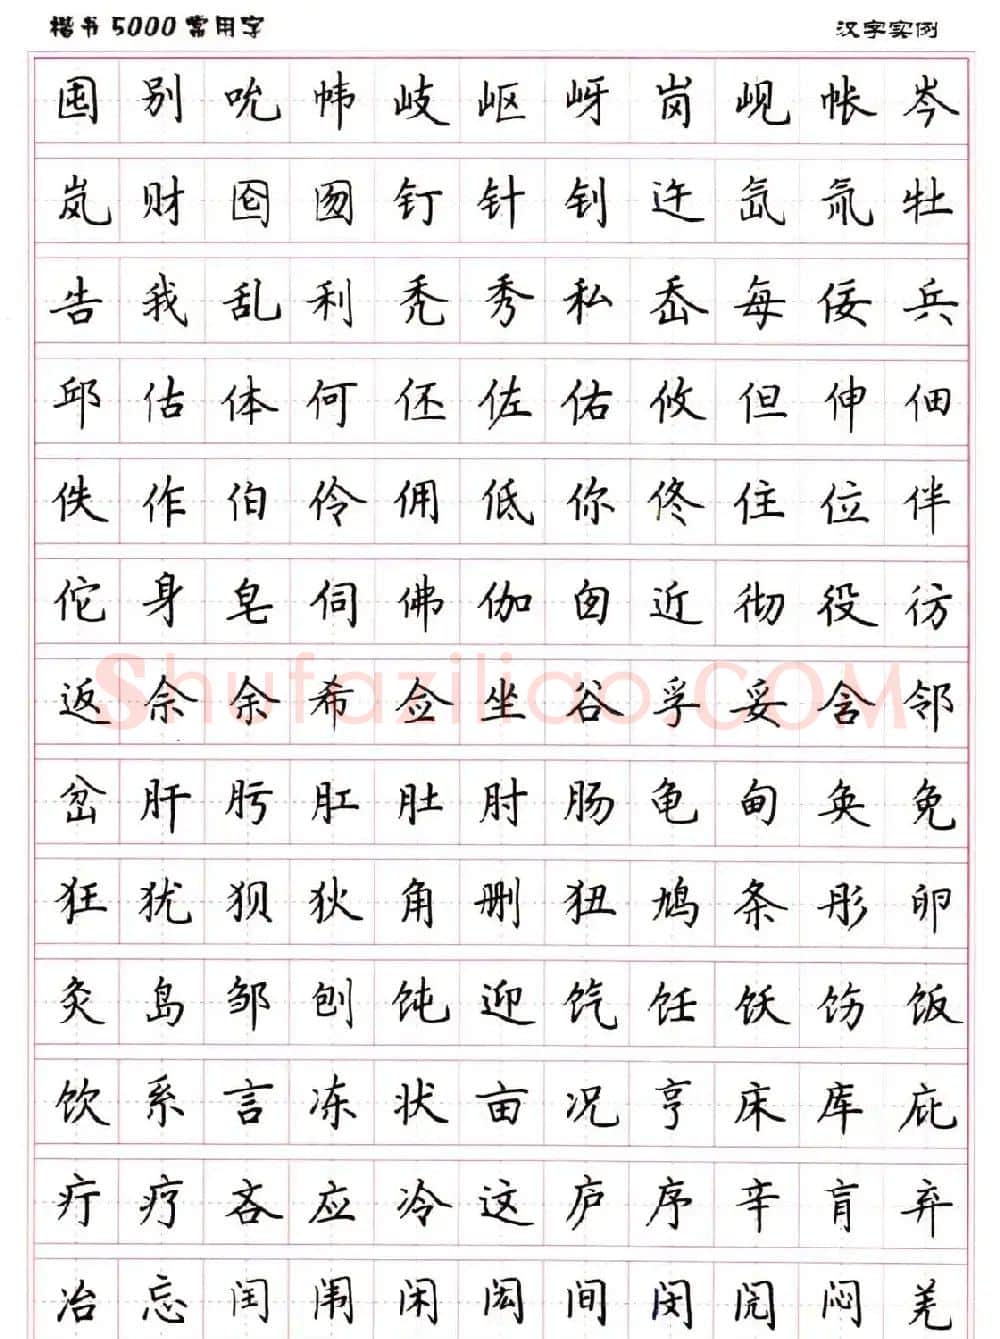 楷书5000常用字 汉字实例
囤别吮帏岐岖岈岗岘帐岑
岚财囵囫钉针钊迕氙氚牡
告我乱利秃秀私岙每佞兵
邱估体何伾佐佑攸但伸佃
佚作伯伶佣低你佟住位伴
佗身皂伺佛伽囱近彻役彷
返佘余希佥坐谷孚妥含邻
岔肝肟肛肚肘肠龟甸奂免
狂犹狈狄角删狃鸠条彤卵
灸岛邹刨饨迎饩饪饫饬饭
饮系言冻状亩况亨床库庇
疔疗吝应冷这庐序辛肓弃
冶忘闰闱闲闳间闵闶闷羌
Shufaziliao.COM